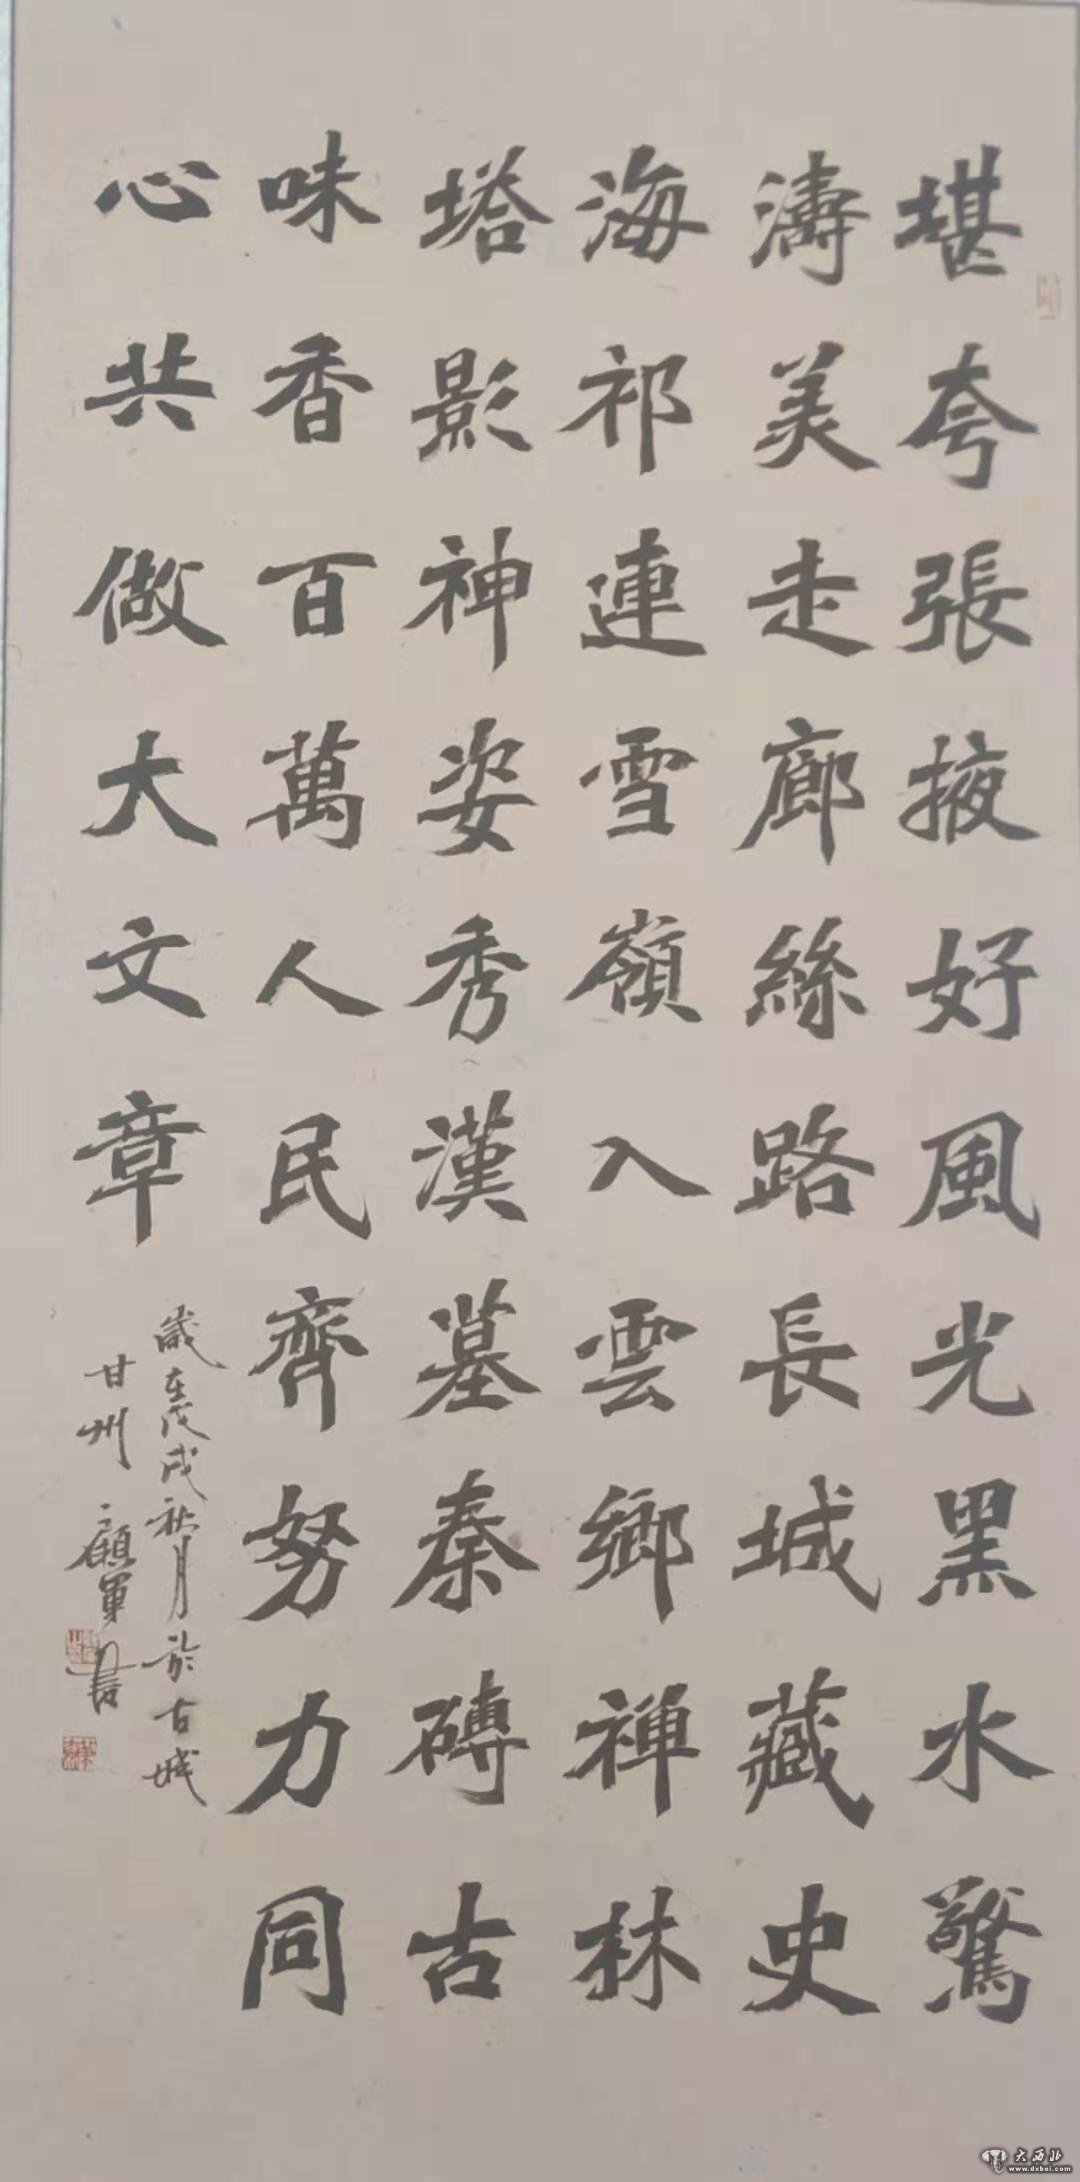 堪夸張掖好風光黑水驚
濤美走廊絲路長城藏史
海祁連雪嶺入雲鄉禅林
塔影神姿秀漢墓秦磚古
味香百萬人民齊努力同
心共做大文章
歲在戊戌秋月於古城
甘州顧軍書
大西北
www.dxbei.com